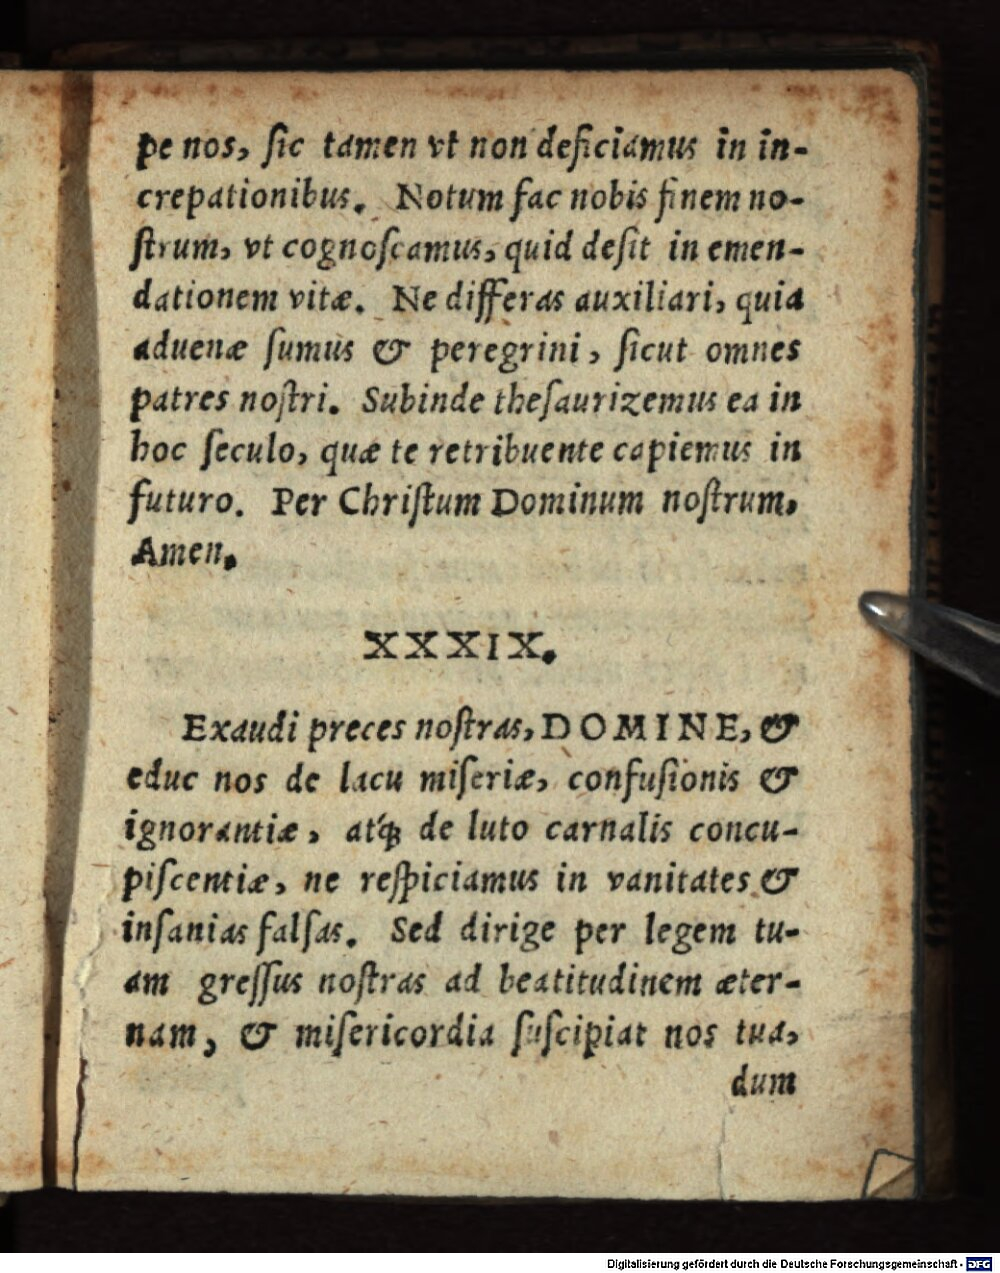 pe nos, ſic tamen vt non deficiamus in in-
crepationibus. Notum fac nobis finem no-
ſtrum, vt cognoſcamus, quid deſit in emen-
dationem vitæ. Ne differas auxiliari, quia
aduenæ ſumus & peregrini, ſicut omnes
patres noſtri. Subinde theſaurizemus ea in
hoc ſeculo, quæ te retribuente capiemus in
futuro. Per Chriſtum Dominum noſtrum.
Amen.
XXXIX.
Exaudi preces noſtras, DOMINE, &
educ nos de lacu miſeriæ, confuſionis &
ignorantiæ, atq́ꝫ de luto carnalis concu-
piſcentiæ, ne reſpiciamus in vanitates &
inſanias falſas. Sed dirige per legem tu-
am greſſus noſtras ad beatitudinem æter-
nam, & miſericordia ſuſcipiat nos tua,
dum
Digitalisierung gefördert durch die Deutsche Forschungsgemeinschaft - DFG